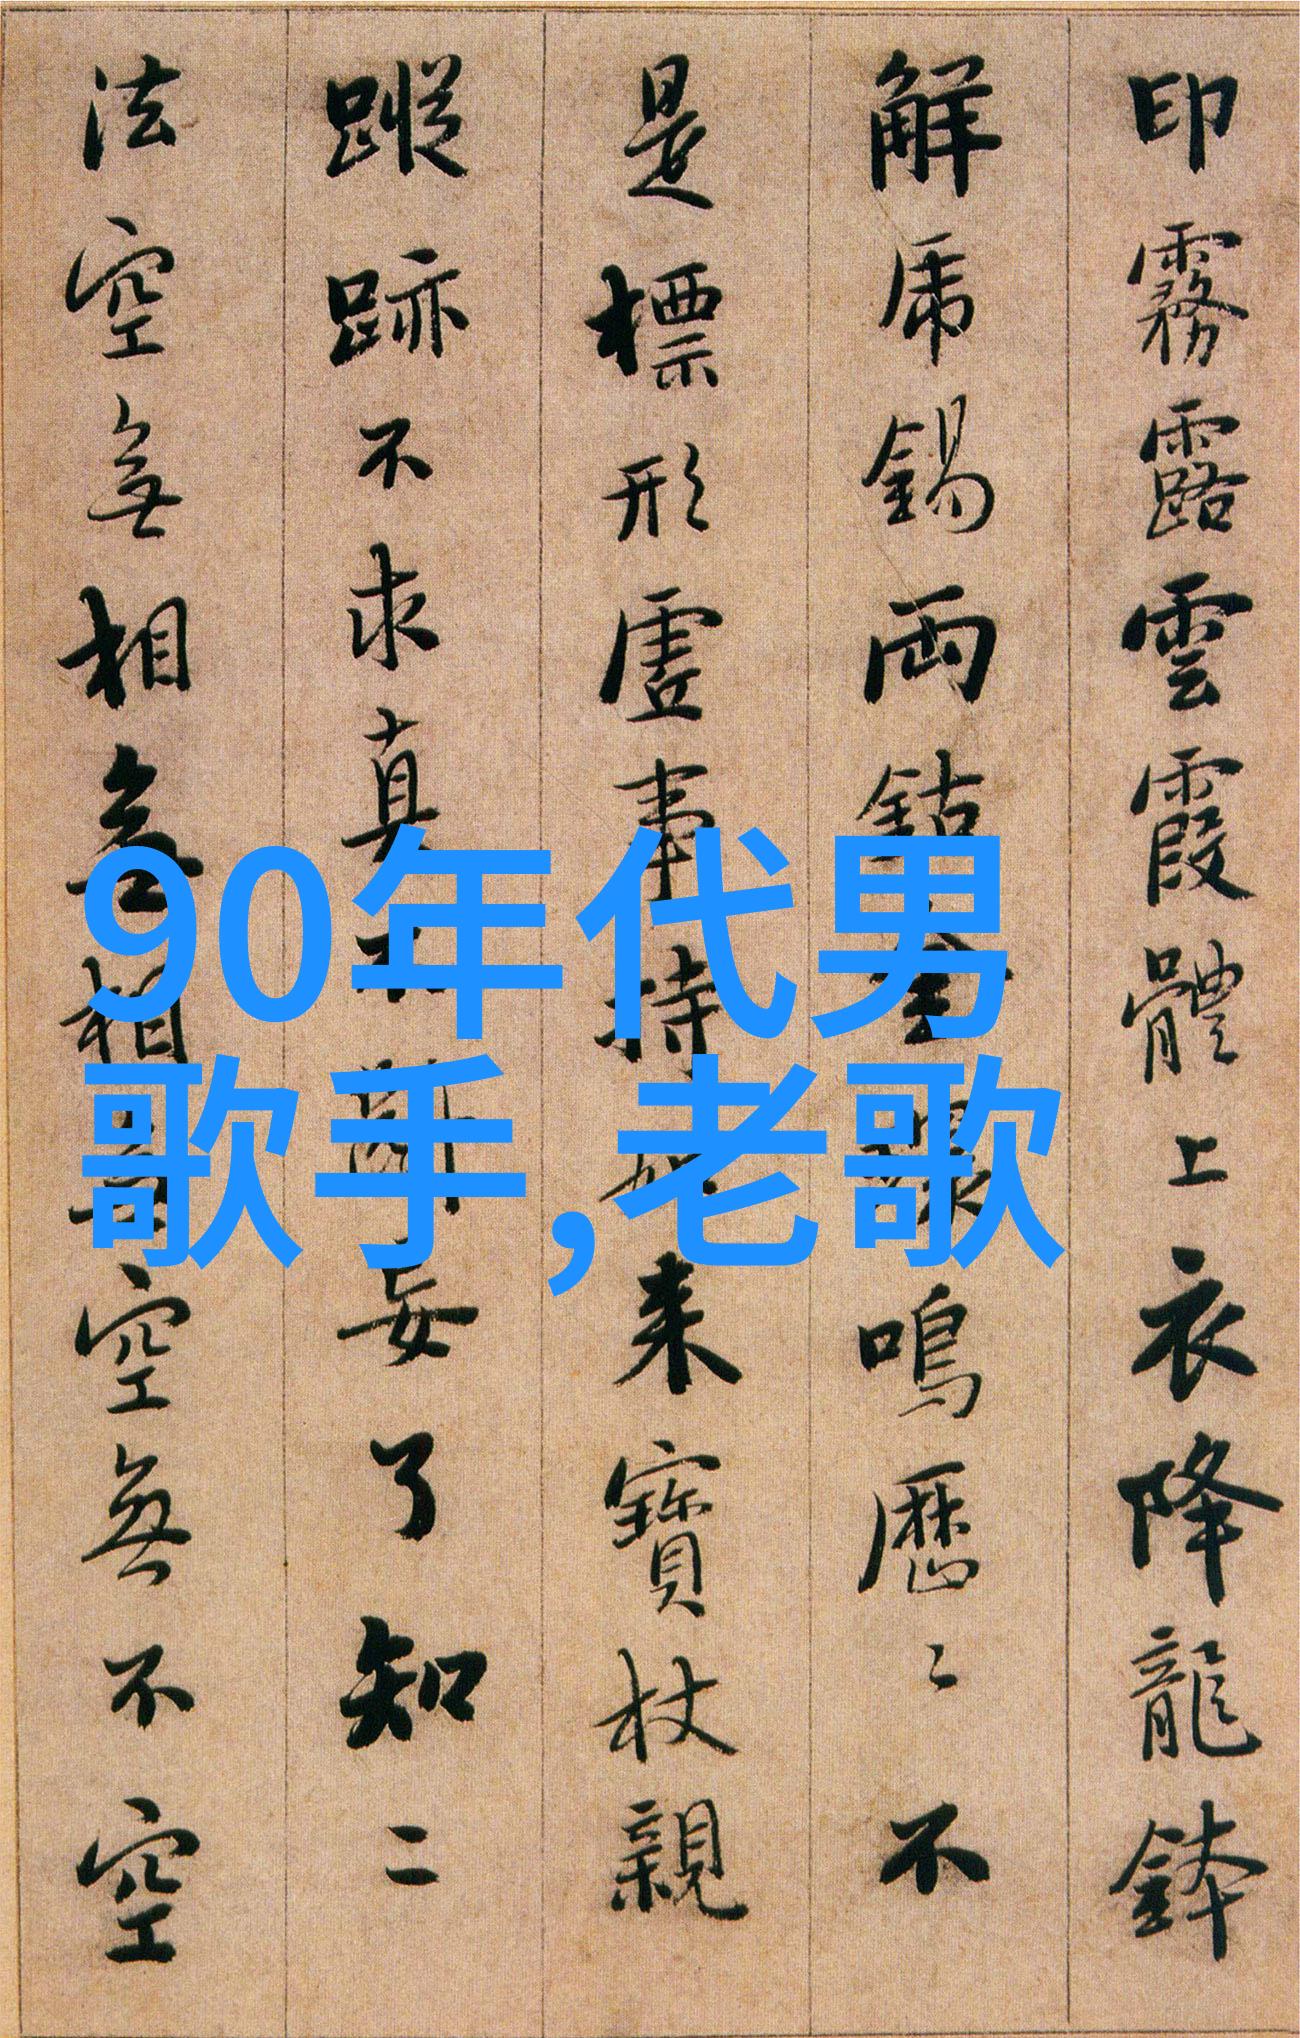 印霧露雲霞體上衣降龍鉢
解虎錫兩鈷金鳴歷〻不
是標形虛事持如來寶杖親
蹤跡不求真不斷妄了知二
法空無相無相無空無不空
90年代男
歌手,老歌